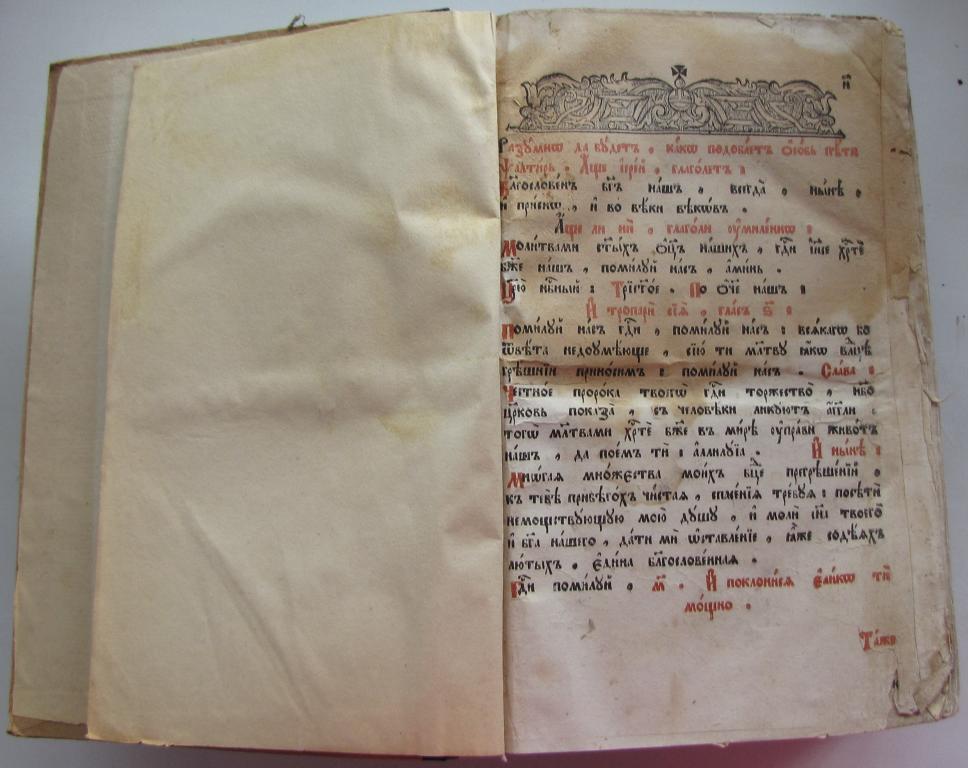 и҃
Разꙋ́мно да бꙋ́детъ , ка́кѡ подоба́етъ ѻ҆со́бь пѣ́ти
ѱалти́рь . А҆́ще і҆ере́й , глаго́летъ :
Благослове́нъ бг҃ъ на́шъ , всегда̀ , ны́нѣ ,
и҆ при́снѡ , и҆ во вѣ́ки вѣкѡ́въ .
А҆́ще ли нѝ , глаго́ли ᲂу҆миле́ннѡ :
Моли́твами ст҃ы́хъ ѻ҆ц҃ъ на́шихъ , гд҇и і҆и҃се хр҇те̑
бж҃е на́шъ , поми́лꙋй на́съ , а҆ми́нь .
Цр҃ю̀ нб҇ный : Трист҃о́е . По ѻ҆́ч҃е на́шъ :
И҆ тропарѝ сїѧ̑ , гла́съ ѕ҃ :
Поми́лꙋй на́съ гд҇и , поми́лꙋй на́съ : всѧ́кагѡ бо
ѿвѣ́та недоꙋмѣ́юще , сїю̀ ти мл҃твꙋ ꙗ҆́кѡ влⷣцѣ
грѣ́шнїи прино́симъ : поми́лꙋй на́съ . Сла́ва :
Честно́е проро́ка твоегѡ̀ гд҇и торжество̀ , нб҃о
цр҃ковь показа̀ , съ человѣ́ки ликꙋ́ютъ а҆́гг҃ли :
тогѡ̀ мл҃твами хр҇те̑ бж҃е въ ми́рѣ ᲂу҆пра́ви живо́тъ
на́шъ , да пое́мъ тѝ : а҆ллилꙋ́їа . И҆ ны́нѣ :
Мнѡ́гаѧ мно́жества мои́хъ бц҃е прегрѣше́нїй ,
къ тебѣ̀ прибѣго́хъ чи́стаѧ , сп҃се́нїѧ тре́бꙋѧ : посѣтѝ
немощствꙋ́ющꙋю мою̀ дꙋ́шꙋ , и҆ молѝ сн҃а твоего̀
и҆ бг҃а на́шего , да́ти мѝ ѡ҆ставле́нїе , ꙗ҆́же содѣ́ѧхъ
лю́тыхъ , є҆ди́на бл҃гослове́ннаѧ .
Гд҇и поми́лꙋй , м҃ . И҆ поклони́сѧ є҆ли́кѡ тѝ
мо́щно .
Та́же